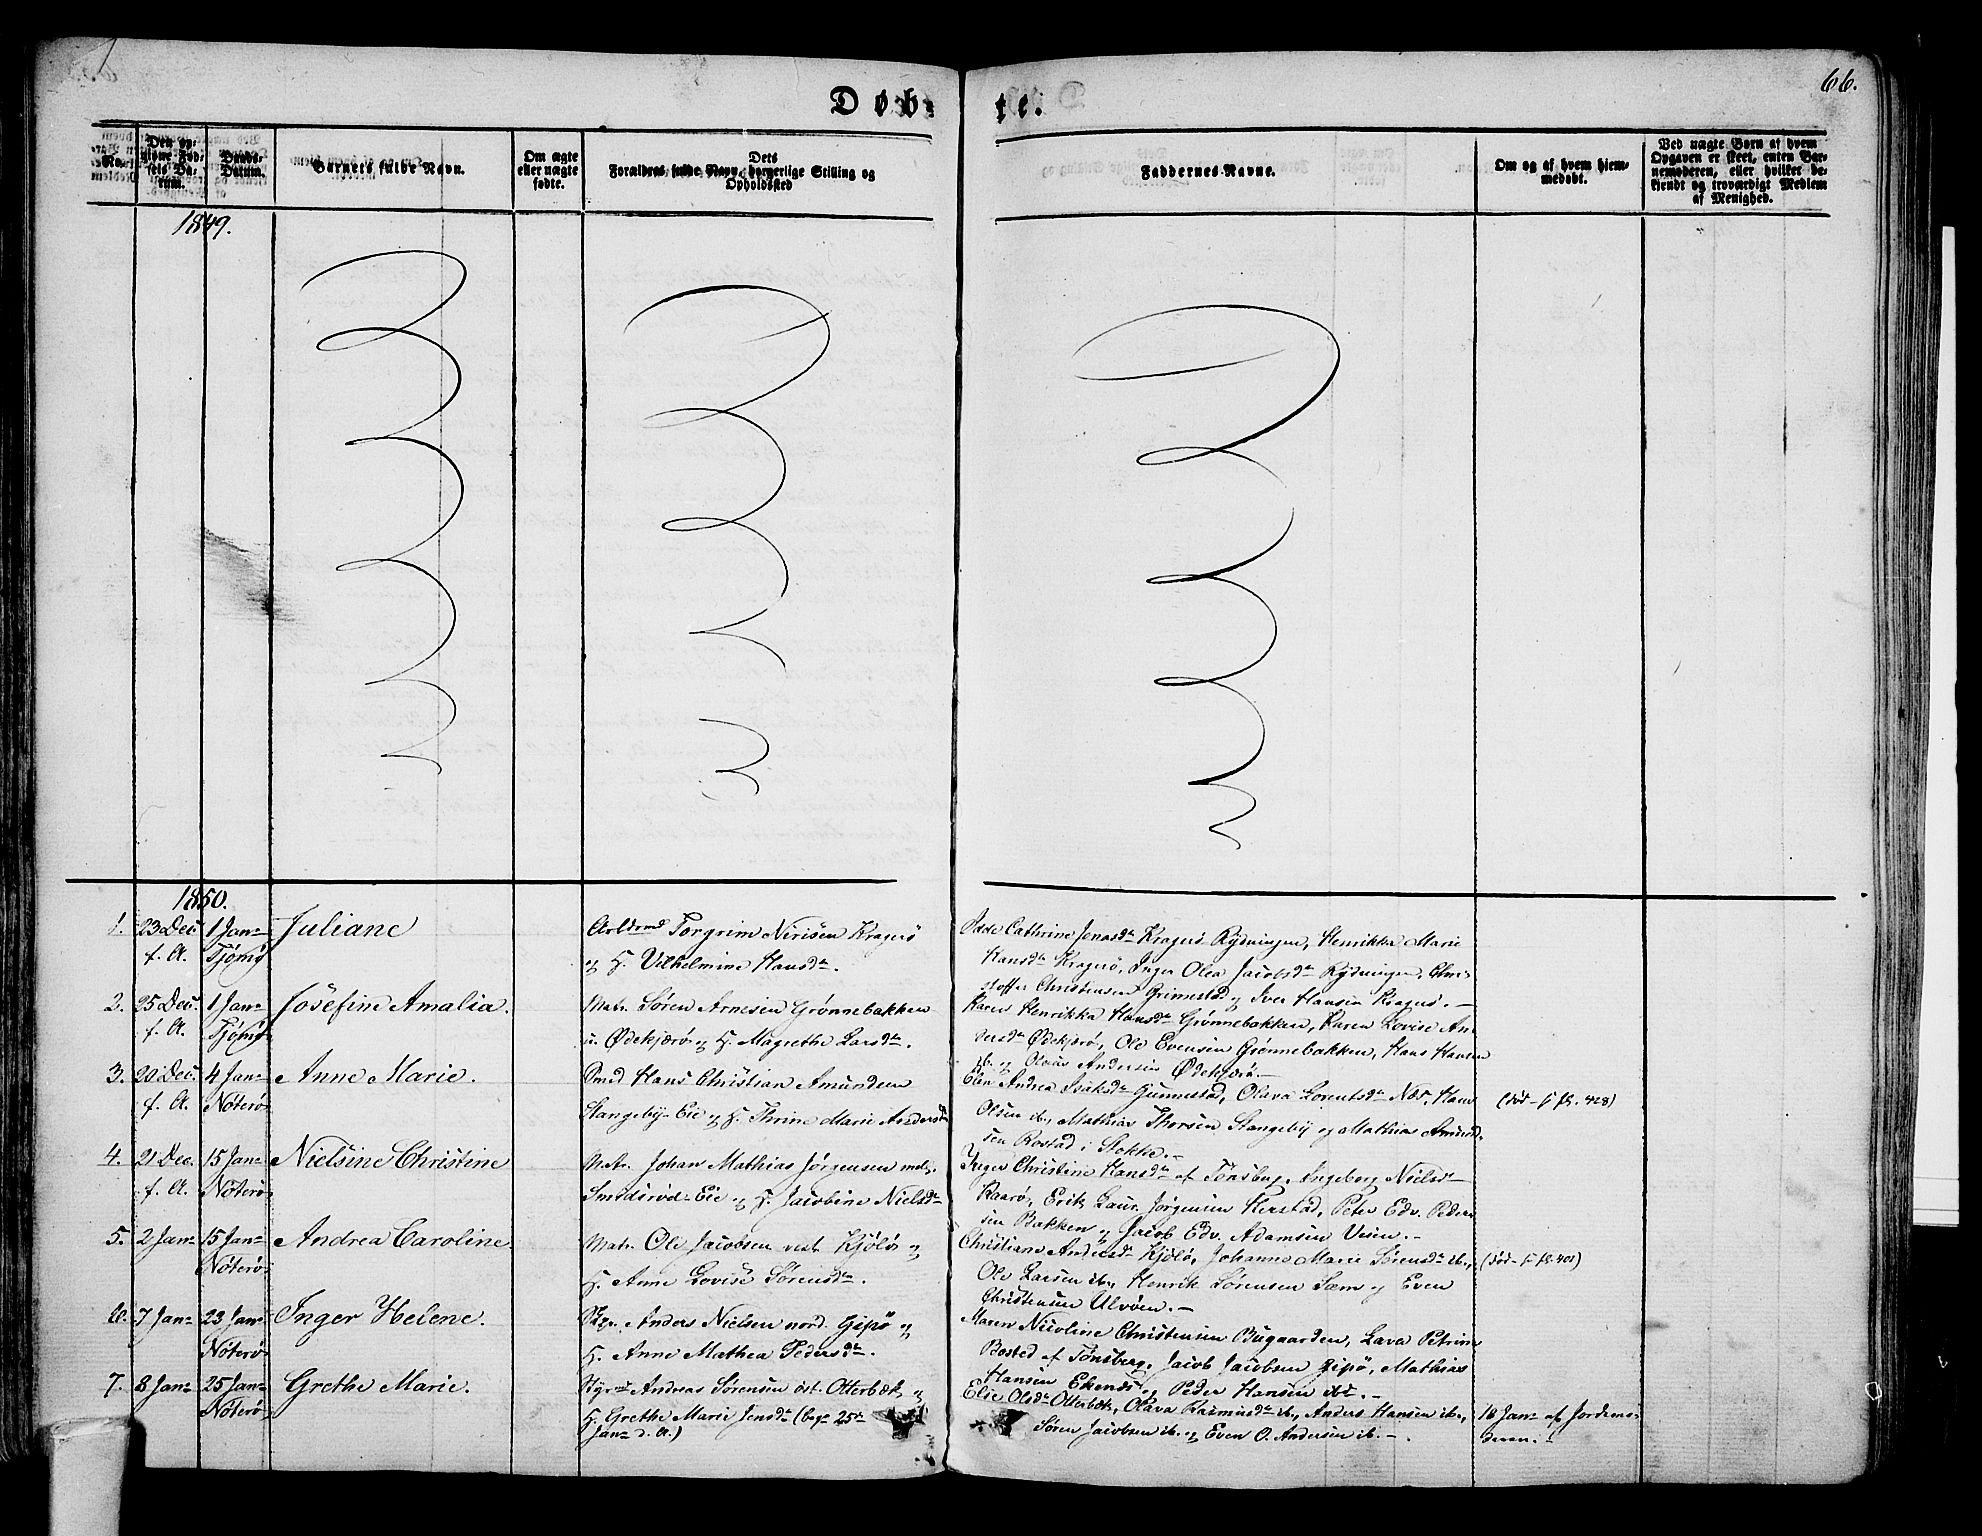 66.
Døb-
te.
No.
Den op-
givne Fød-
sels Da-
tum.
Daabs-
Datum.
Barnets fulde Navn.
Om ægte
eller uægte
fødte.
Dets
Forældres fulde Navn, borgerlige Stilling og
Opholdssted
Faddernes Navne.
Om og af hvem hjem-
medøbt.
Ved uægte Børn af hvem
Opgaven er skeet, enten Bar-
nemoderen, eller hvilket be-
kjendt og troværdigt Medlem
af Menighed.
1849.
1850.
1. 23 Dec. 1 Jan. Juliane
f. A. Tjømø
Torgrim Nirisen Kragerø
og H. Vilhelmine Hansdr.
Cathrine Jonasdr Kragerø Rydningen, Henrikka Marie
Hansdr Kragerø, Inger Olea Jacobsdr Rydningen, Chri-
stoffer Christensen Grimestad og Iver Hansen Kragerø. -
2. 25 Dec. 1 Jan. Josefine Amalia.
f. A. Tjømø
Matr. Søren Arnesen Grønnebakken
u. Ødekjærø og H. Magrethe Larsdr.
Karen Henrikka Hansdr Grønnebakken, Karen Lovise An-
dersdr Ødekjærø, Ole Evensen Grønnebakken, Hans Hansen
ib. og Olaus Andersen Ødekjærø. -
3. 20 Dec. 4 Jan. Anne Marie.
f. A. Nøterø
Smed Hans Christian Amundsen
Stangeby-Eie og H. Thrine Marie Andersdr
Elen Andrea Isaksdr Gunnestad, Olava Lorentsdr Næs, Hans
Olsen ib., Mathias Thorsen Stangeby og Mathias Amund-
sen Rostad i Stokke. -
(død - s. pg. 428)
4. 21 Dec. 15 Jan. Nielsine Christine
f. A. Nøterø
Matr. Johan Mathias Jørgensen mel.
Smidsrød-Eie og H. Jacobine Nielsdr
Inger Christine Hansdr af Tønsberg, Ingeborg Nielsdr
Kaarø, Erik Laur. Jørgensen Herstad, Peter Edv. Peder-
sen Bakken og Jacob Edv. Adamsen Veien. -
5. 2 Jan. 15 Jan. Andrea Caroline.
Nøterø
Matr. Ole Jacobsen vest. Kjøløe og
H. Anne Lovise Sørensdr.
Christiane Andersdr Kjøløe, Johanne Marie Sørensdr ib.,
Ole Larsen ib., Henrik Sørensen Sæm og Even
Christensen Ulvøen. -
(død - s. pg. 401)
6. 7 Jan. 23 Jan. Inger Helene.
Nøterø
Styr. Anders Nielsen nord. Gipø og
H. Anne Mathea Pedersdr.
Maren Nicoline Christensen Bugaarden, Lava Petrine
Bosted af Tønsberg, Jacob Jacobsen Gipø, Mathias
Hansen Ekenes og Peder Hansen ib. -
7. 8 Jan. 25 Jan. Grethe Marie.
Nøterø
Styrm. Andreas Sørensen øst. Otterbæk og
H. Grethe Marie Jensdr (beg. 25de
Jan. d. A.)
Elie Olsdr Otterbæk, Olava Rasmusdr ib., Anders Hansen ib.,
Søren Jacobsen ib. og Even O. Andersen ib. -
18 Jan. af Jordemo-
deren. -